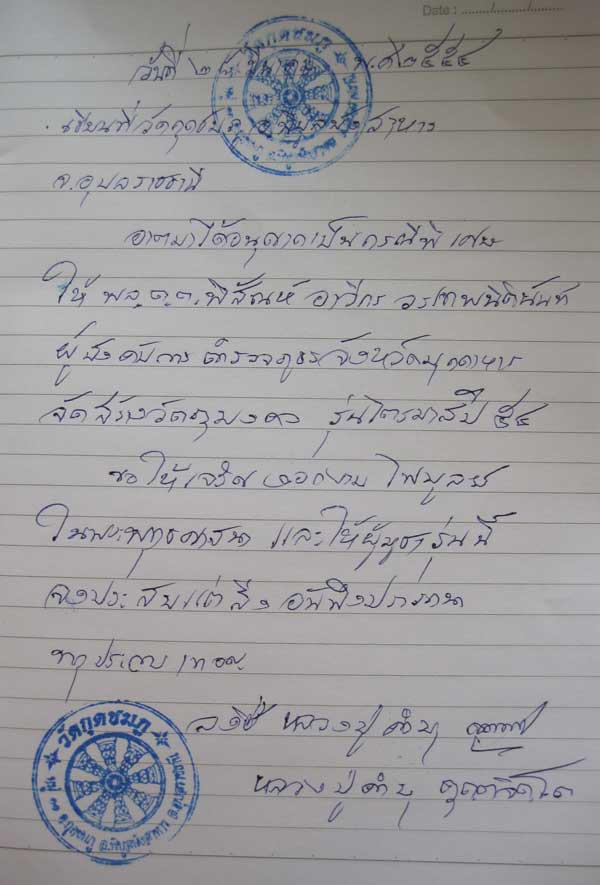 Date : ......../......../........
วันที่ ๒๘ มีนาคม พ.ศ ๒๕๕๔
เขียนที่วัดกุดชมภู อ.พิบูลมังสาหาร
จ.อุบลราชธานี
อาตมาได้อนุญาตเป็นกรณีพิเศษ
ให้ พล.ต.ต.พิสัณห์ อาวีกร วรเทพนิตินันท์
ผู้บังคับการ ตำรวจภูธรจังหวัดมุกดาหาร
จัดสร้างวัตถุมงคล รุ่นไตรมาสปี ๕๔
ขอให้เจริญ งอกงาม ไพบูลย์
ในพระพุทธศาสนา และให้ผู้บูชารุ่นนี้
จงประสบแต่สิ่งอันพึงปรารถนา
ทุกประการ เทอญ
ลงชื่อ หลวงปู่คำบุ
หลวงปู่คำบุ คุตฺตจิตฺโต
วัดกุดชมภู